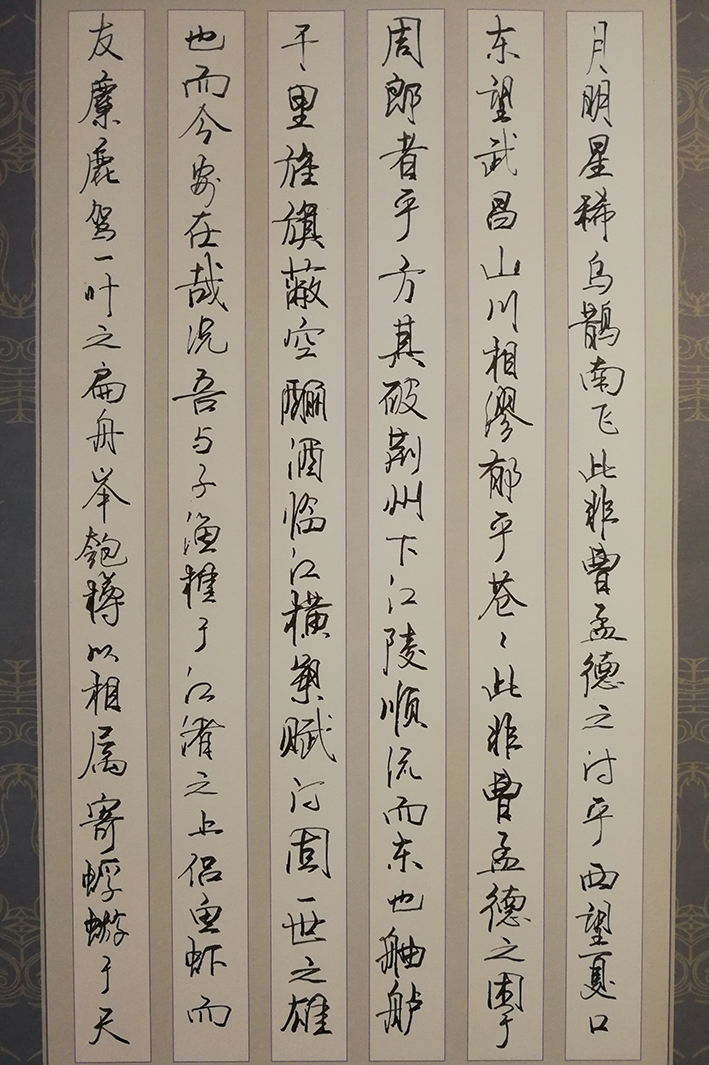 月明星稀乌鹊南飞此非曹孟德之诗乎西望夏口
东望武昌山川相缪郁乎苍苍此非曹孟德之困于
周郎者乎方其破荆州下江陵顺流而东也舳舻
千里旌旗蔽空酾酒临江横槊赋诗固一世之雄
也而今安在哉况吾与子渔樵于江渚之上侣鱼虾而
友麋鹿驾一叶之扁舟举匏樽以相属寄蜉蝣于天